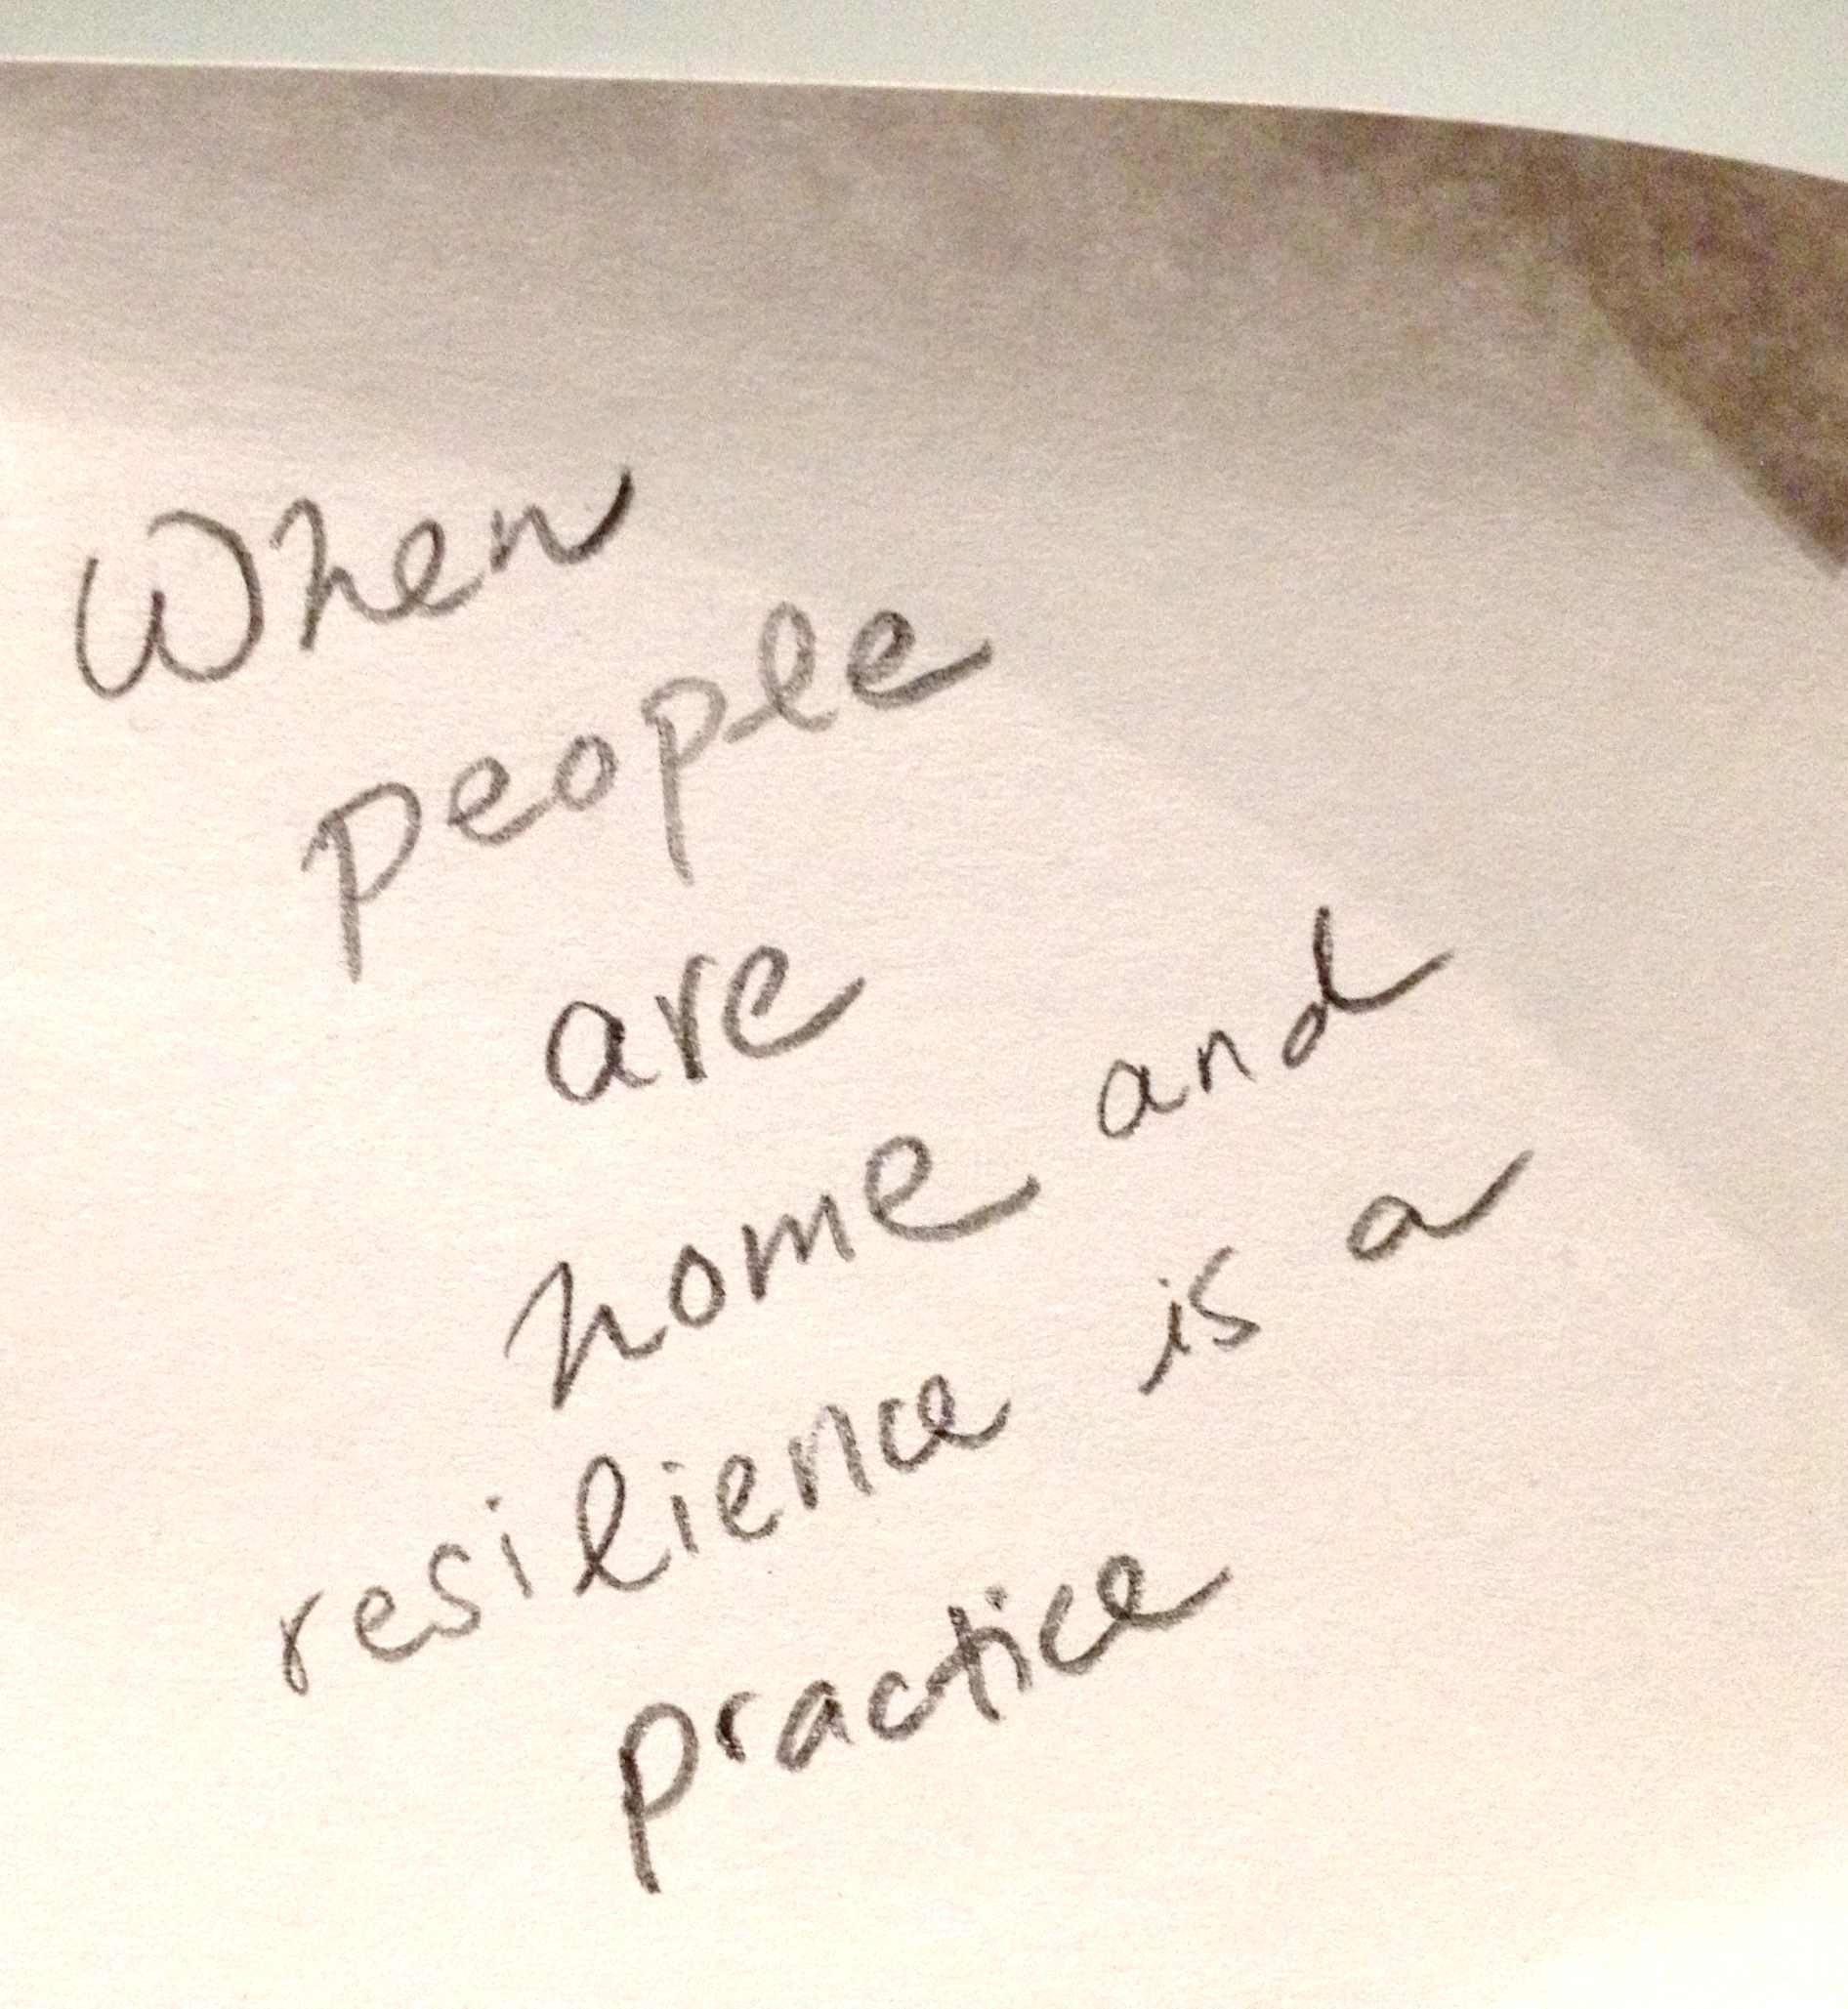 When
people
are
home and
resilience is a
practice